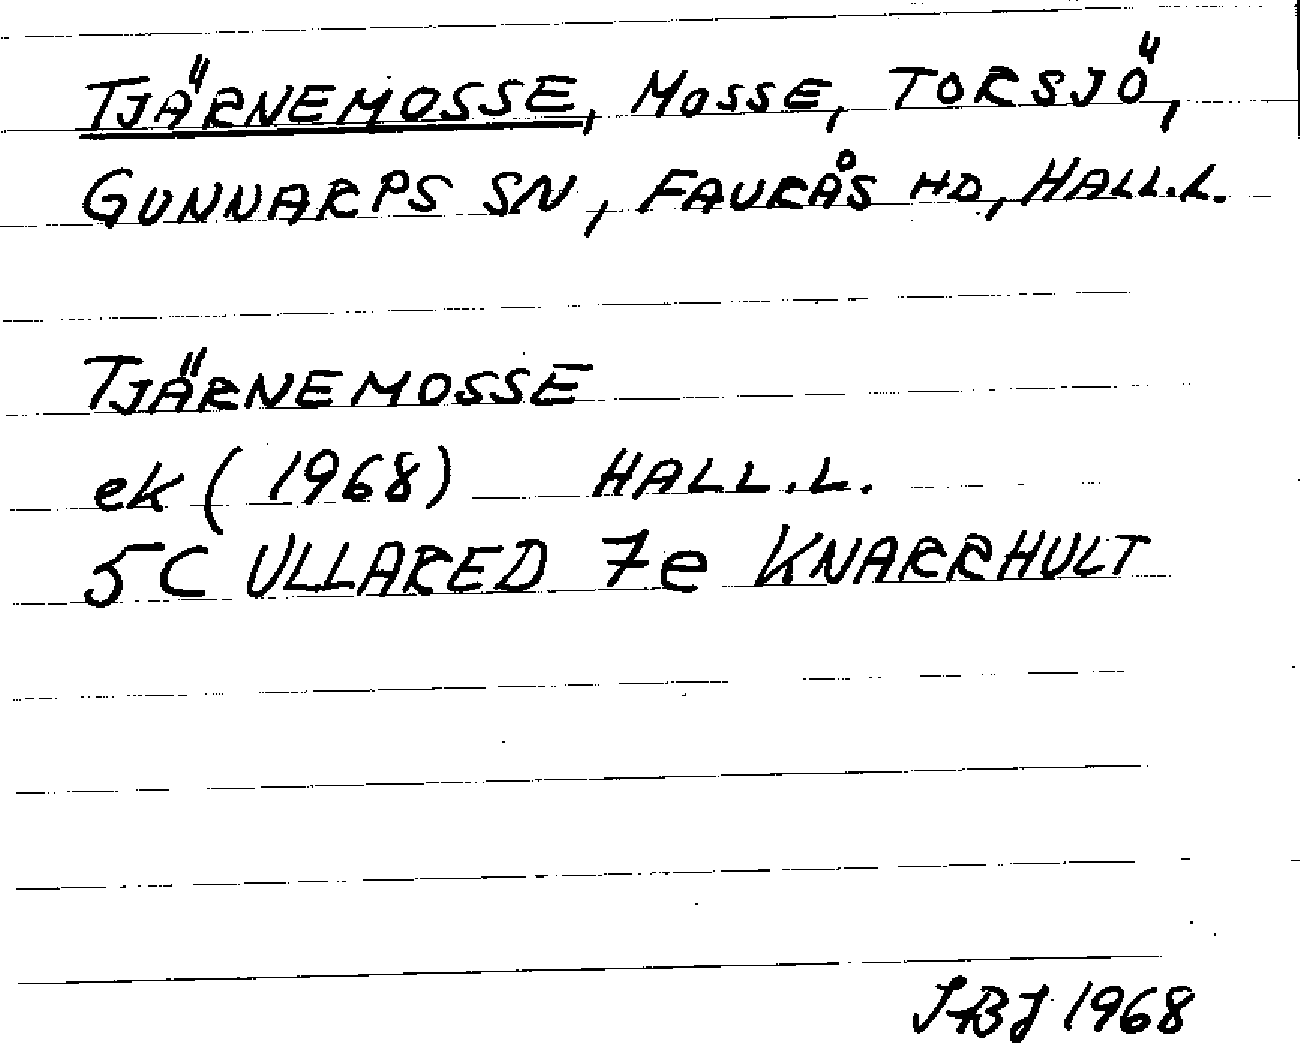 TJÄRNEMOSSE, MOSSE, TORSJÖ,
GUNNARPS SN, FAURÅS HD, HALL.L.
TJÄRNEMOSSE
ek (1968) HALL.L.
5C ULLARED 7e KNARRHULT
1968